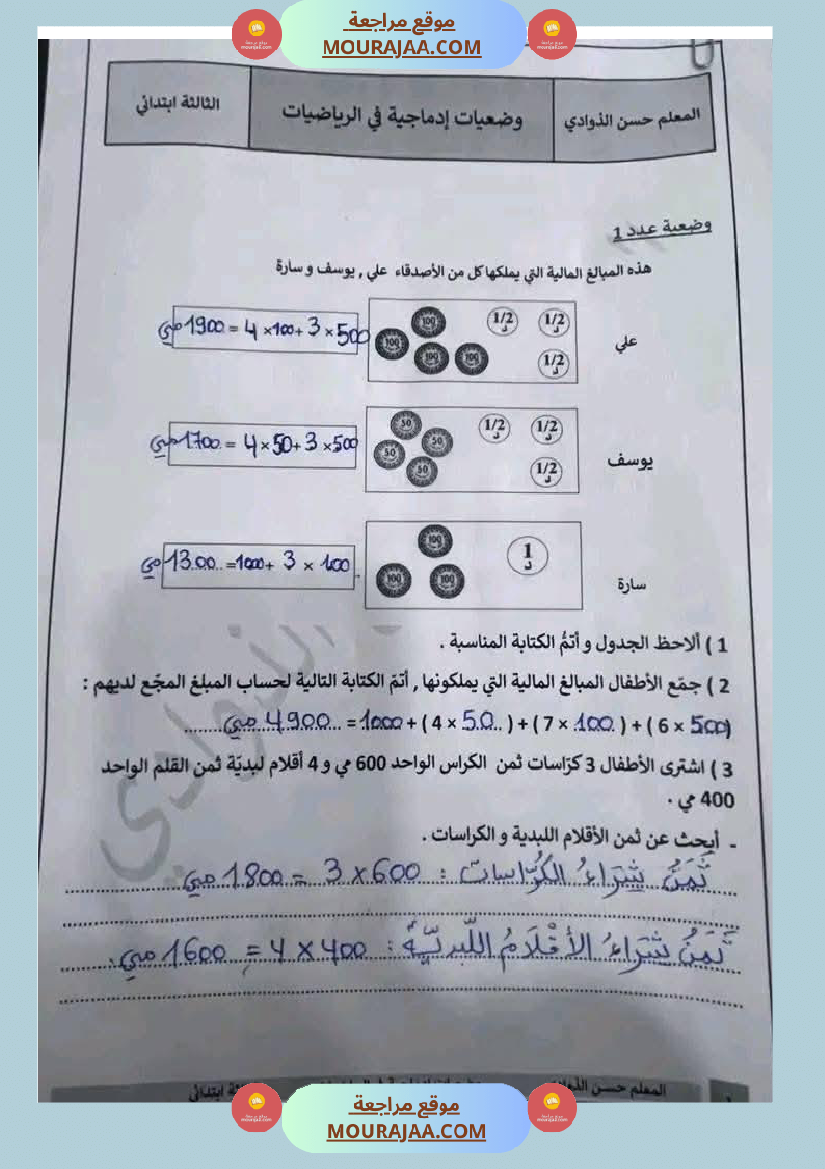 موقع مراجعة
MOURAJAA.COM
المعلم حسن الذوادي
وضعيات إدماجية في الرياضيات
الثالثة ابتدائي
وضعية عدد 1
هذه المبالغ المالية التي يملكها كل من الأصدقاء علي , يوسف و سارة
علي
1/2 د 1/2 د 1/2 د
100 100 100 100
1900 مي = 4 × 100 + 3 × 500
يوسف
1/2 د 1/2 د 1/2 د
50 50 50 50
1700 مي = 4 × 50 + 3 × 500
سارة
1 د
100 100 100
1300 مي = 1000 + 3 × 100
1 ) ألاحظ الجدول و أتمُّ الكتابة المناسبة .
2 ) جمّع الأطفال المبالغ المالية التي يملكونها , أتمّ الكتابة التالية لحساب المبلغ المجّع لديهم :
4900 مي = 1000 + ( 4 × 50 ) + ( 7 × 100 ) + ( 6 × 500 )
3 ) اشترى الأطفال 3 كرّاسات ثمن الكراس الواحد 600 مي و 4 أقلام لبديّة ثمن القلم الواحد
400 مي .
- أبحث عن ثمن الأقلام اللبدية و الكراسات .
ثَمَنُ شِرَاءُ الكُرَّاسات : 600 × 3 = 1800 مي
ثَمَنُ شِرَاءُ الأَقْلَامُ اللَّبديَّةُ : 400 × 4 = 1600 مي
المعلم حسن الذوادي
موقع مراجعة
MOURAJAA.COM